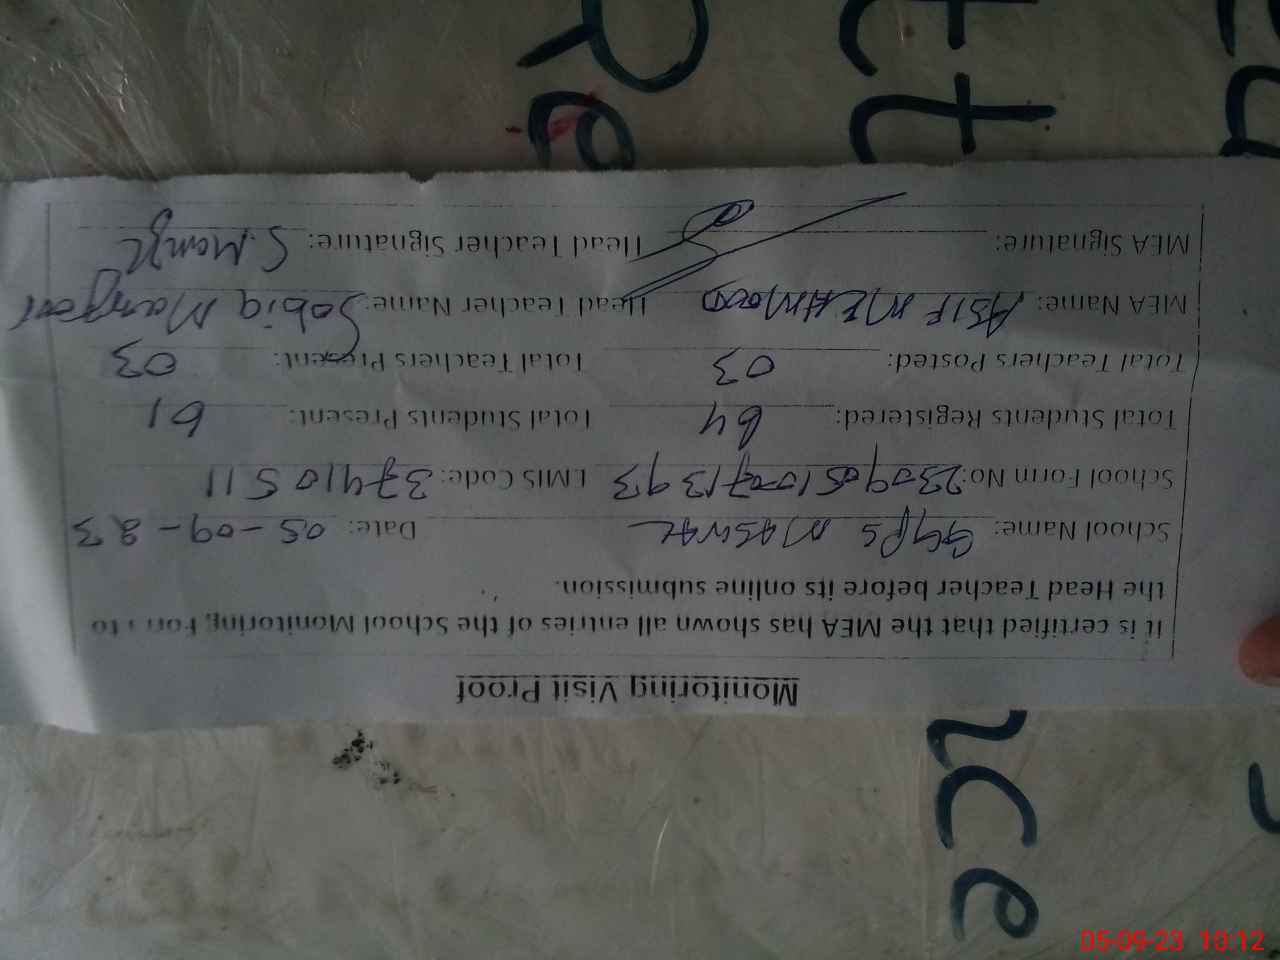 Monitoring Visit Proof
it is certified that the MEA has shown all entries of the School Monitoring Form to
the Head Teacher before its online submission.
School Name: GGPS MASWAL Date: 05-09-23
School Form No: LMIS Code: 37410511
Total Students Registered: 64 Total Students Present: 61
Total Teachers Posted: 03 Total Teachers Present: 03
MEA Name: ASIF MEHMOOD Head Teacher Name: Sobia
MEA Signature: Head Teacher Signature:
05-09-23 10:12